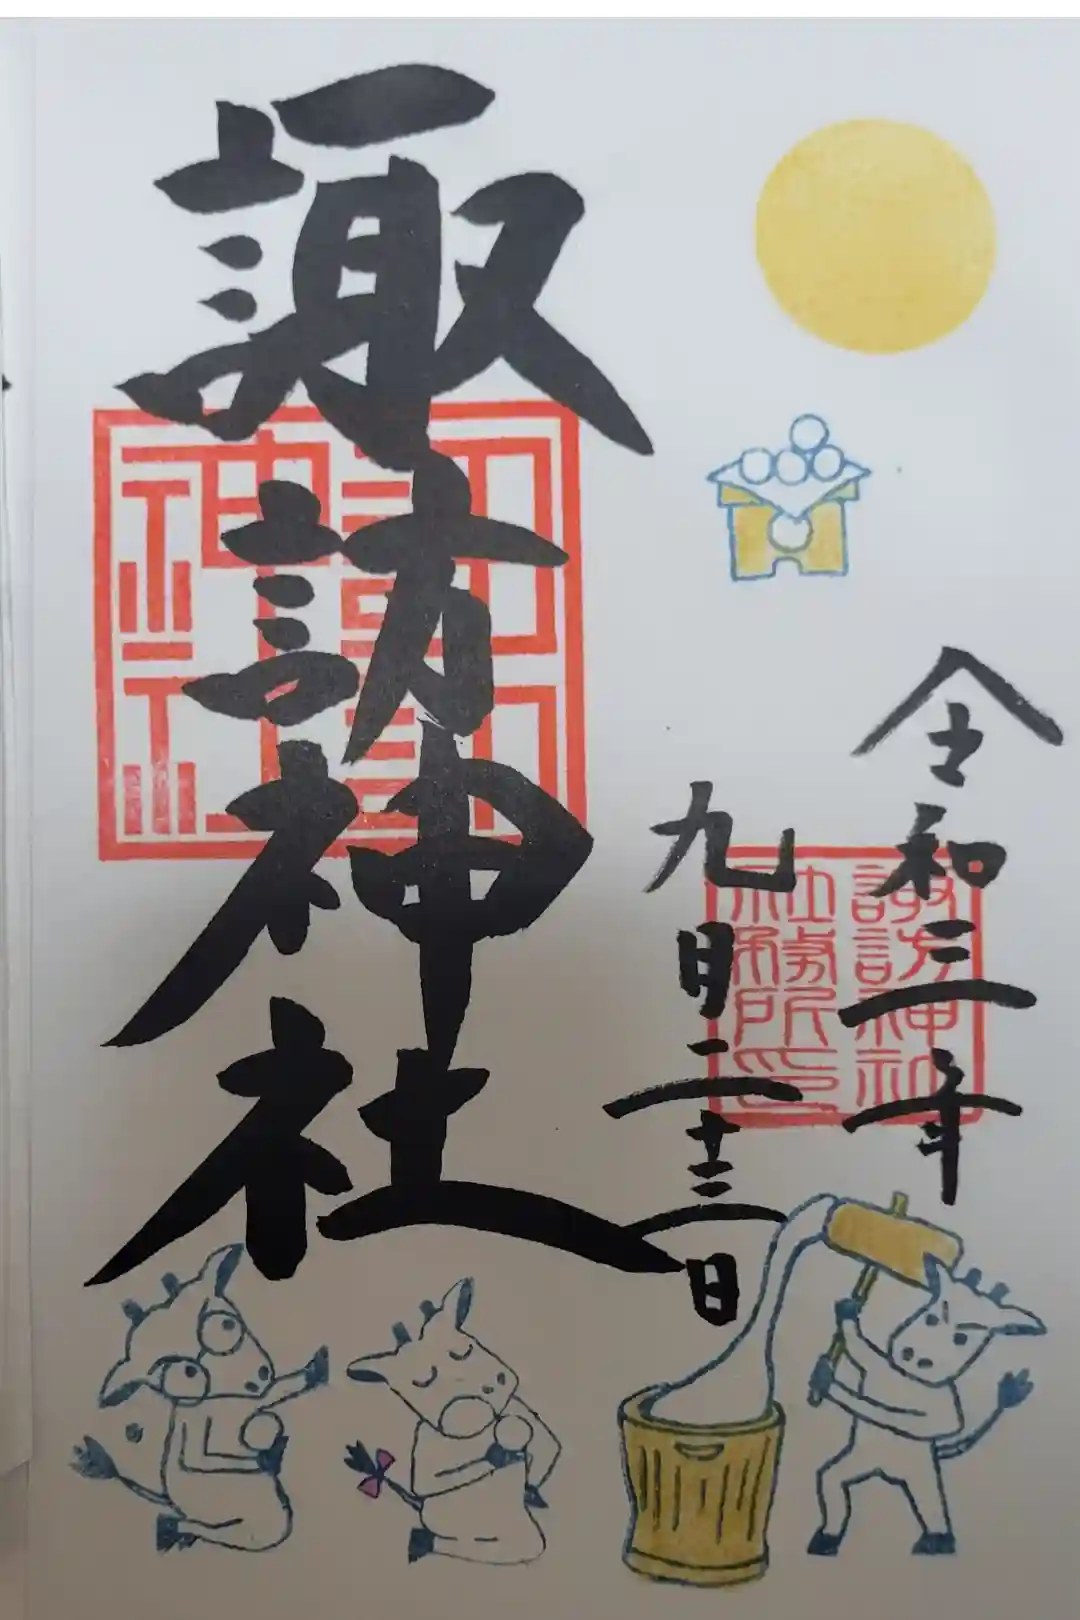 令和三年
九月二十三日
諏訪神社
諏訪
神社
諏訪神社
社務所印